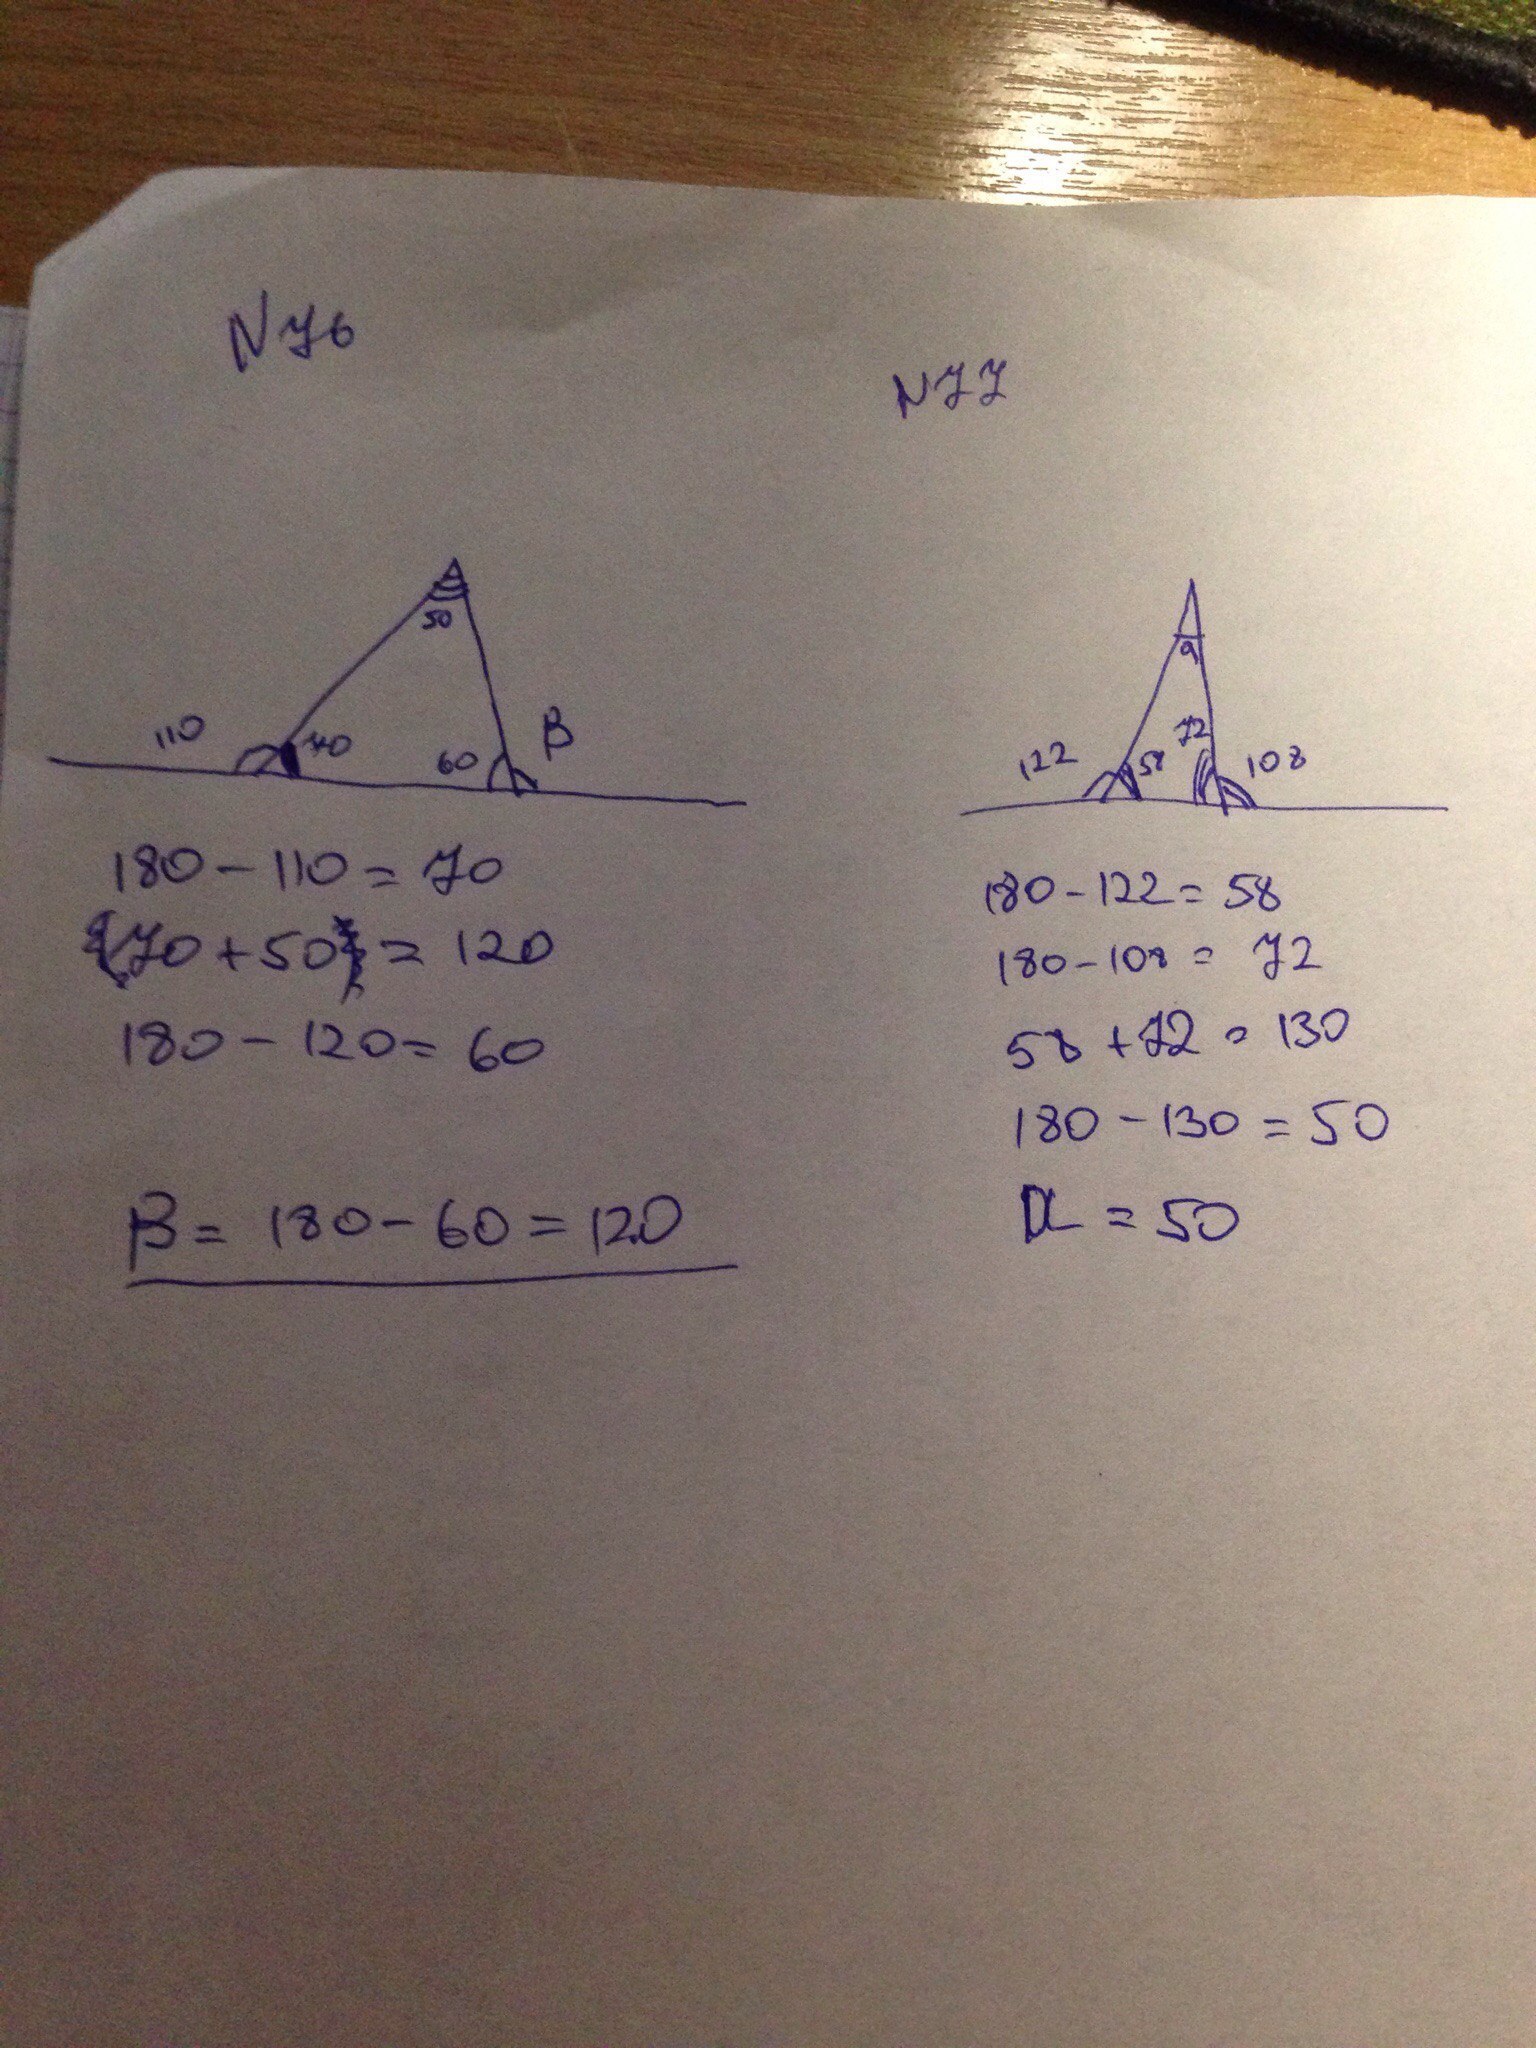 N76
50
110
70
60
β
180-110=70
70+50=120
180-120=60
β= 180-60=120
N77
α
72
122
58
108
180-122=58
180-108=72
58+72=130
180-130=50
α=50